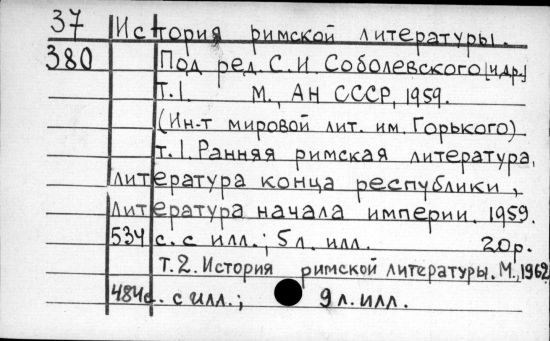 37 История римской литературы.
380 Под ред. С.И. Соболевского [и др.]
Т.1. М., АН СССР, 1959.
(Ин-т мировой лит. им. Горького)
т.1. Ранняя римская литература,
литература конца республики,
литература начала империи. 1959.
534 с. с илл.; 5 л. илл. 20 р.
Т.2. История римской литературы. М., 1962
484 с. с илл.; 9 л. илл.